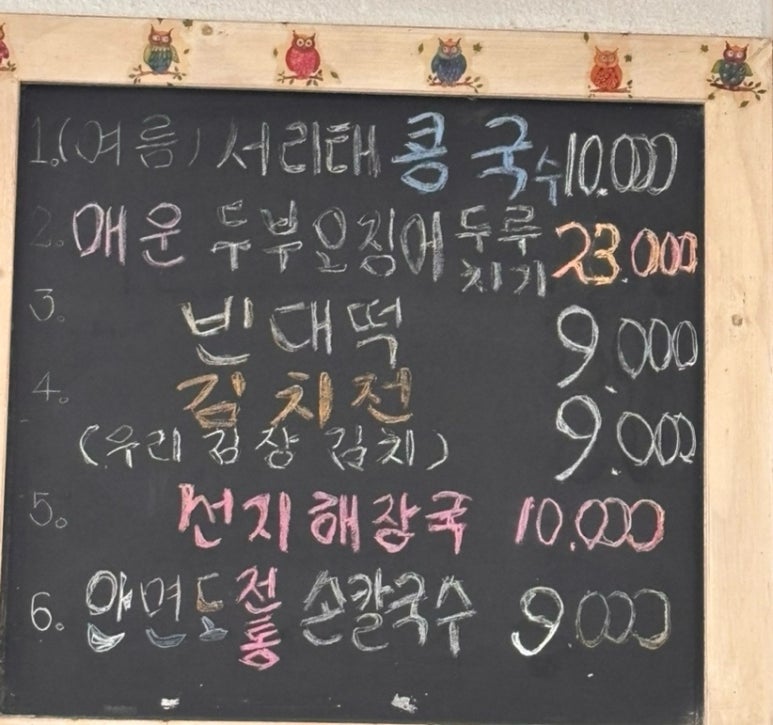 1.(여름) 서리태 콩국수 10.000
2. 매운 두부오징어 두루치기 23.000
3. 빈대떡 9.000
4. 김치전
(우리 김장 김치) 9.000
5. 선지해장국 10.000
6. 안면도 전통 손칼국수 9000